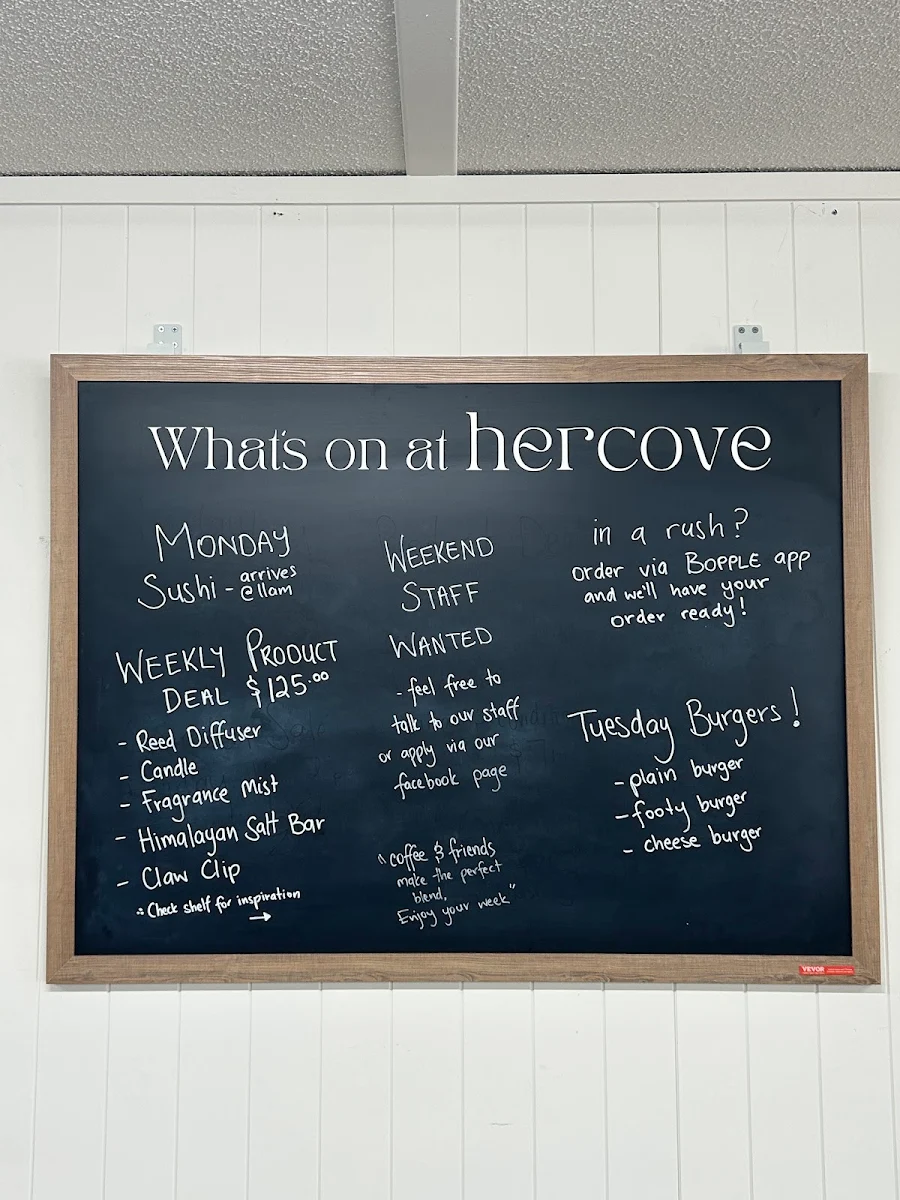 What's on at hercove
MONDAY
Sushi - arrives
@ 11am
WEEKLY PRODUCT
DEAL $125.00
- Reed Diffuser
- Candle
- Fragrance Mist
- Himalayan Salt Bar
- Claw Clip
Check shelf for inspiration
→
WEEKEND
STAFF
WANTED
- feel free to
talk to our staff
or apply via our
facebook page
"coffee & friends
make the perfect
blend.
Enjoy your week"
in a rush?
order via BOPPLE app
and we'll have your
order ready!
Tuesday Burgers!
- plain burger
- footy burger
- cheese burger
VEVOR